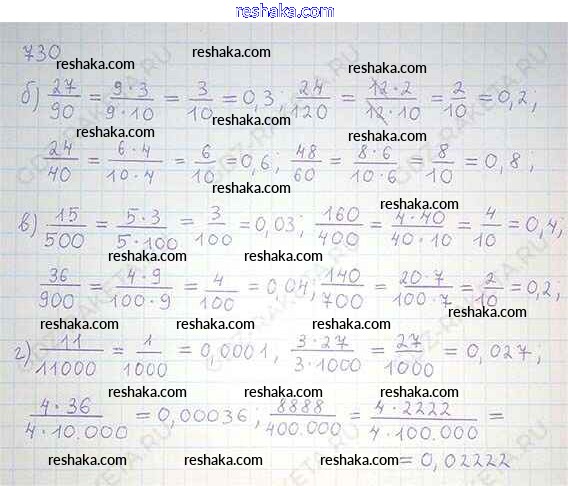 reshaka.com
730
reshaka.com reshaka.com reshaka.com
б) 27/90 = 9·3/9·10 = 3/10 = 0,3; 24/120 = 12·2/12·10 = 2/10 = 0,2;
reshaka.com reshaka.com reshaka.com
24/40 = 6·4/10·4 = 6/10 = 0,6; 48/60 = 8·6/10·6 = 8/10 = 0,8;
reshaka.com reshaka.com reshaka.com
в) 15/500 = 5·3/5·100 = 3/100 = 0,03; 160/400 = 4·40/40·10 = 4/10 = 0,4;
reshaka.com reshaka.com reshaka.com
36/900 = 4·9/100·9 = 4/100 = 0,04; 140/700 = 20·7/100·7 = 2/10 = 0,2,
reshaka.com reshaka.com reshaka.com
г) 11/11000 = 1/1000 = 0,0001, 3·27/3·1000 = 27/1000 = 0,027;
reshaka.com reshaka.com reshaka.com
4·36/4·10.000 = 0,00036; 8888/400.000 = 4·2222/4·100.000 =
reshaka.com reshaka.com reshaka.com
= 0,02222
reshaka.com reshaka.com reshaka.com